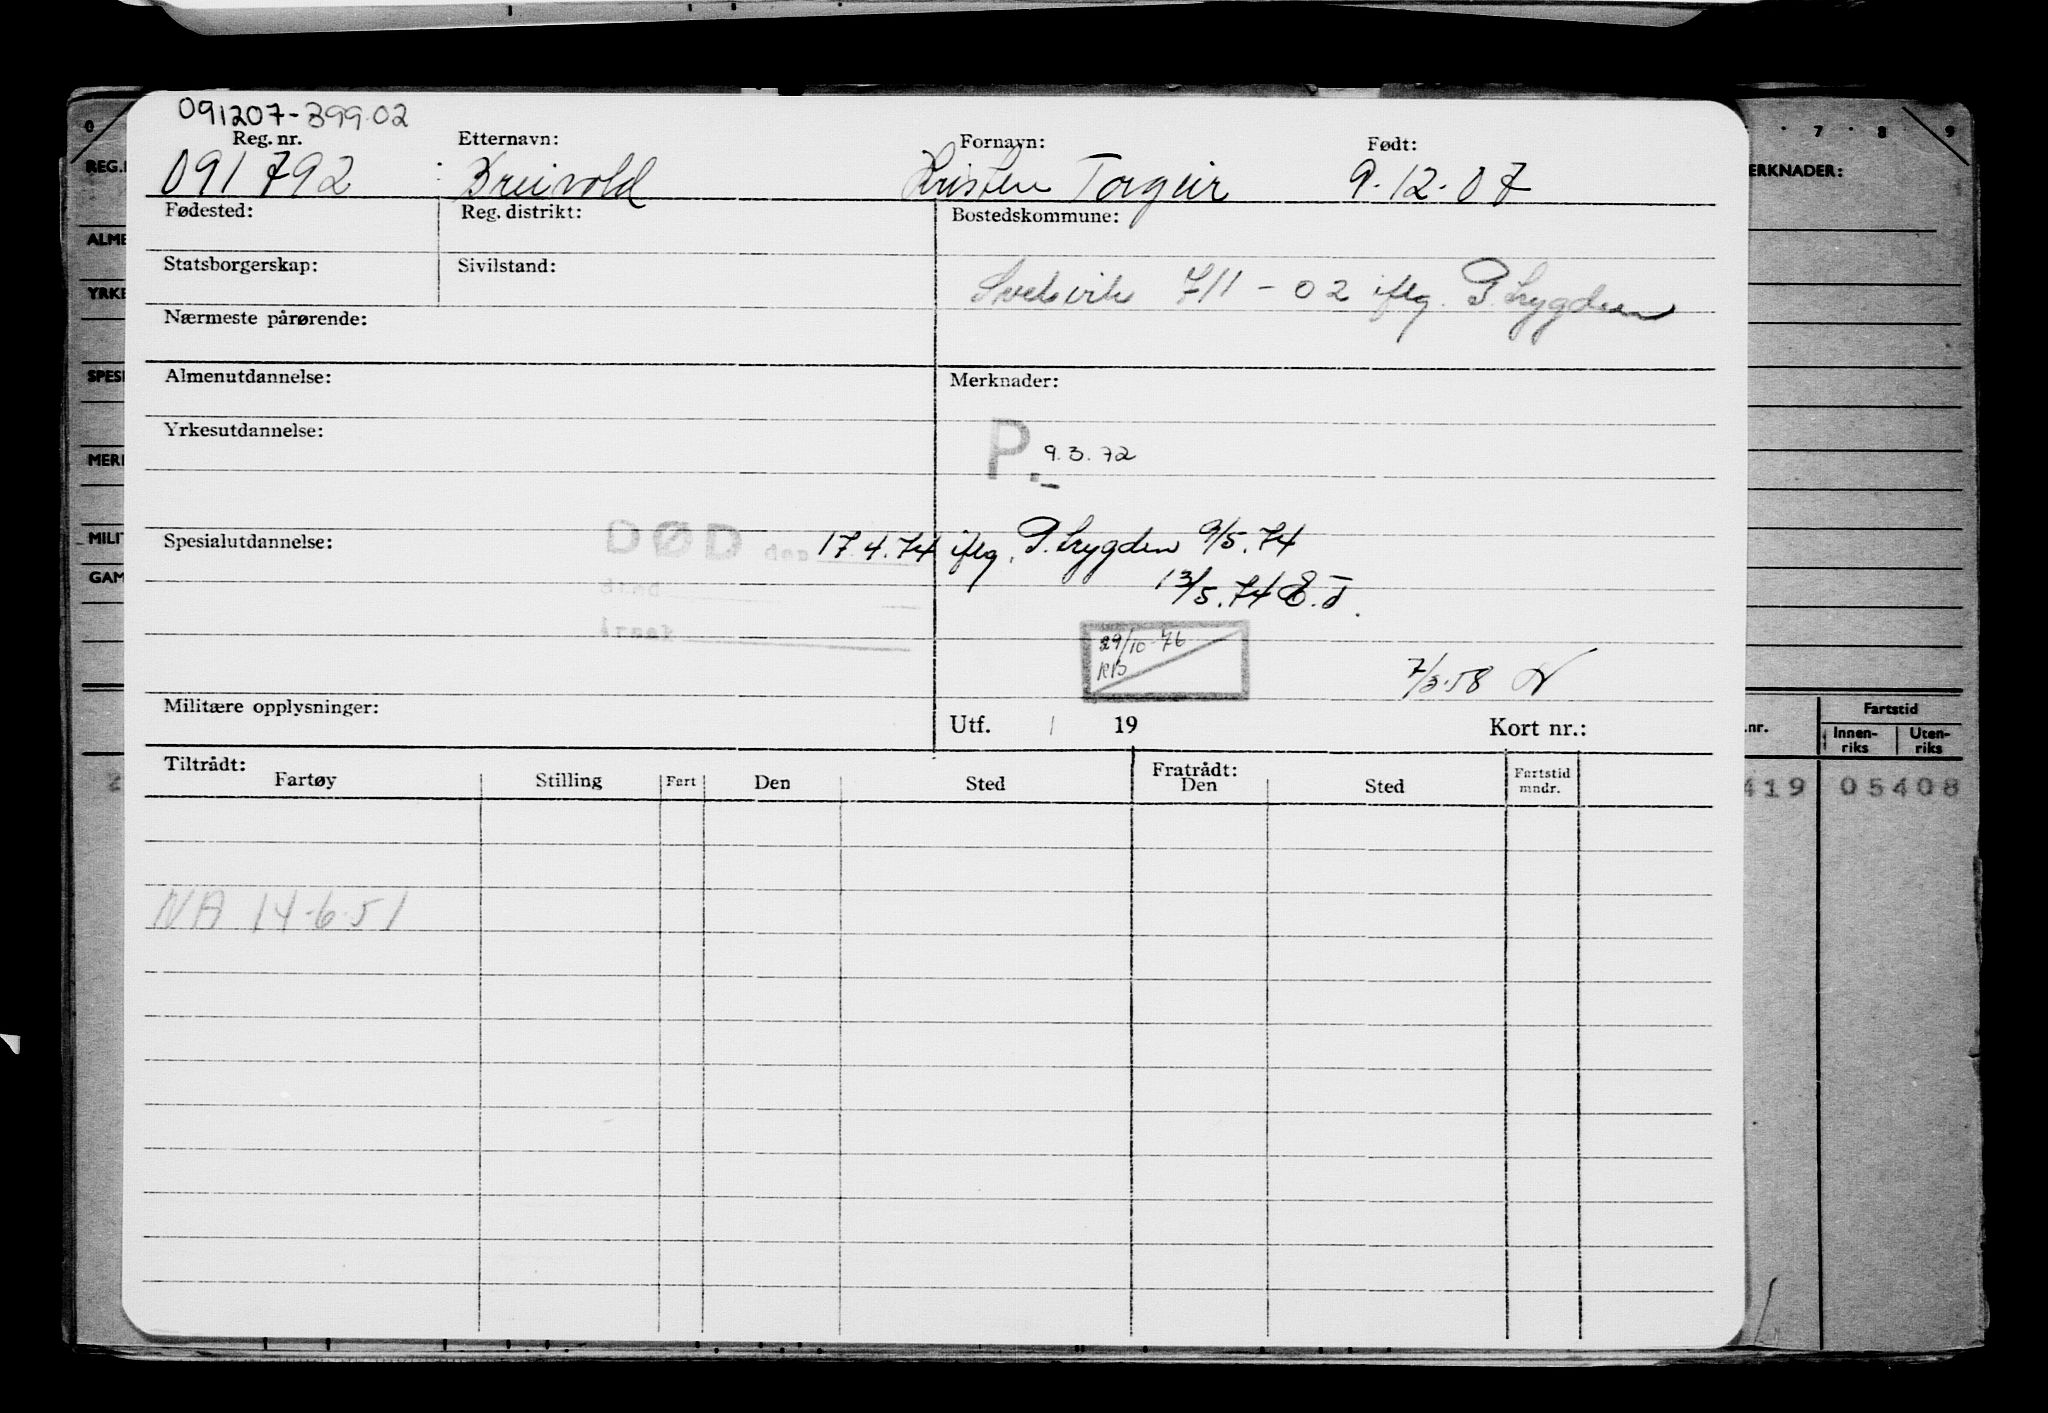 0 7 8 9
091207-39902
Reg. nr. Etternavn: Fornavn: Født:
091792 Breivold Kristen Torgeir 9.12.07
REG. ERKNADER:
Fødested: Reg. distrikt: Bostedskommune:
ALME
Statsborgerskap: Sivilstand:
Svelvik 711-02 iflg. P. trygden
YRKE
Nærmeste pårørende:
SPESI
Almenutdannelse: Merknader:
Yrkesutdannelse:
P. 9.3.72
MER
MILIT
Spesialutdannelse: DØD den 17.4.74 iflg. P. trygden 9/5.74
GAM
13/5.74 E.J.
årsak
29/10-76
KB
7/3.58
Militære opplysninger: Utf. / 19 Kort nr.:
nr. Fartstid
Innen-riks Uten-riks
Tiltrådt: Fratrådt:
Fartøy Stilling Fart Den Sted Den Sted Fartstid mndr.
2 419 05408
NA 14-6-51